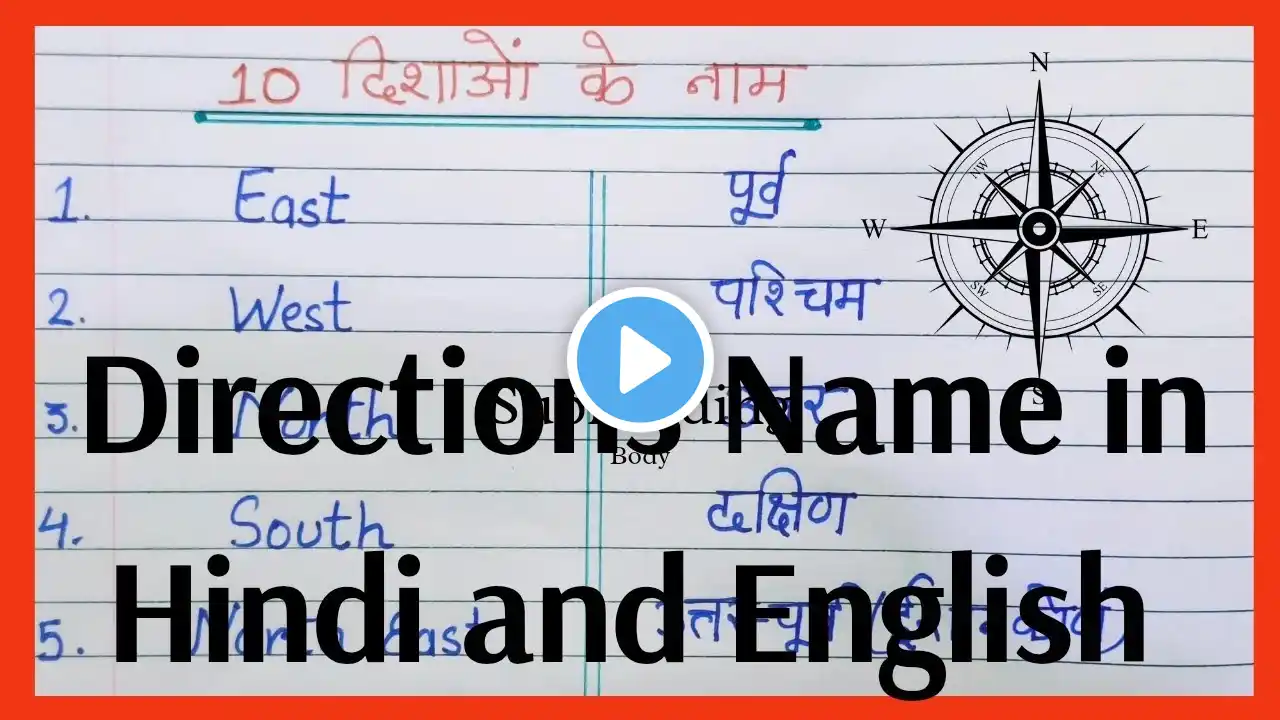 10 दिशाओं के नाम
N
NW NE
W E
SW SE
S
1. East पूर्व
2. West पश्चिम
Directions Name in
3. North
Body
4. South दक्षिण
Hindi and English
5. North East उत्तर-पूर्व (ईशान कोण)